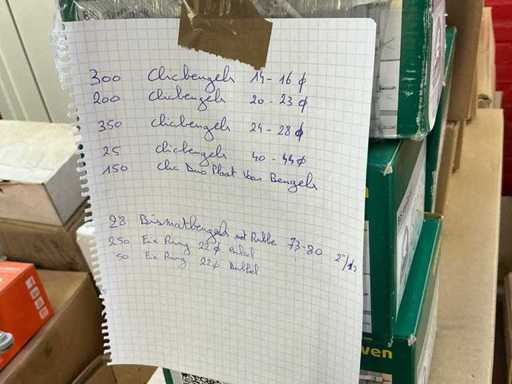 300 Clicbeugels 14-16 ϕ
200 Clicbeugels 20-23 ϕ
350 Clicbeugels 24-28 ϕ
25 Clicbeugels 40-44 ϕ
150 Clic Duo Plaat Voor Beugels
28 Bismatbeugels met Rubber 73-80 2"1/2
250 Fix Ring 22 ϕ Enkel
50 Fix Ring 22 ϕ Dubbel
ven